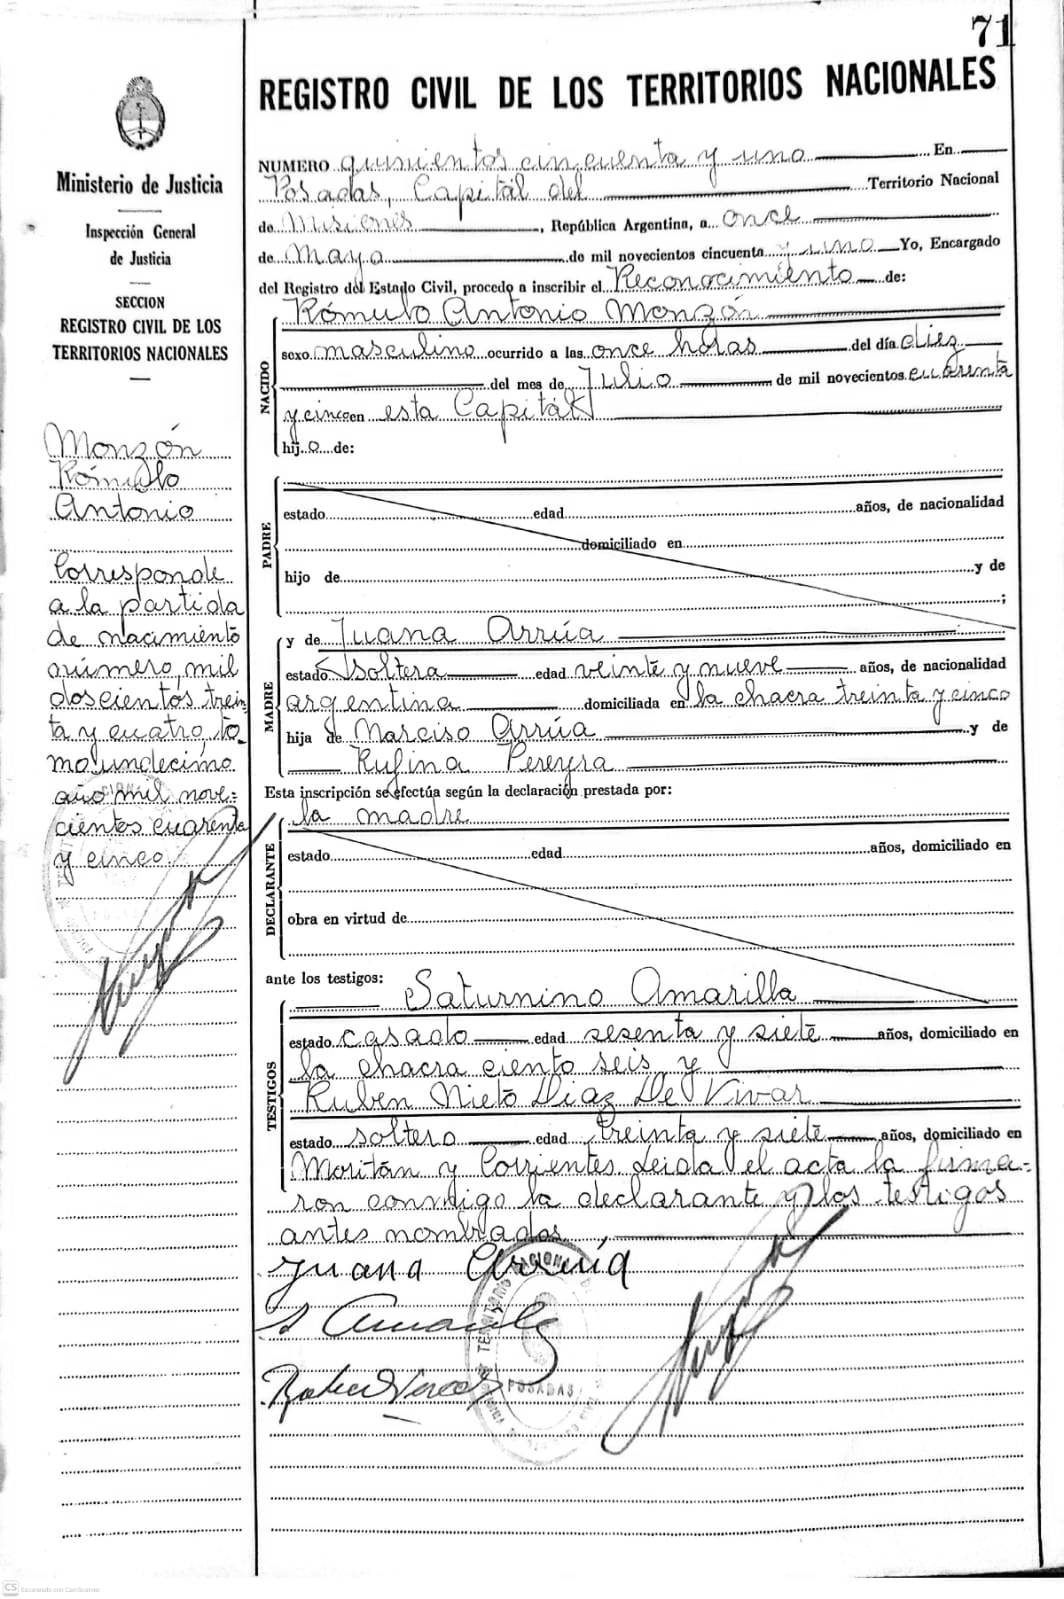 71
REGISTRO CIVIL DE LOS TERRITORIOS NACIONALES
Ministerio de Justicia
Inspección General
de Justicia
SECCION
REGISTRO CIVIL DE LOS
TERRITORIOS NACIONALES
Monzón
Rómulo
Antonio
Corresponde
a la partida
de nacimiento
número, mil
doscientos trein
ta y cuatro, to-
mo undecimo
año mil nove=
cientos cuarenta
y cinco.
NUMERO quinientos cincuenta y uno En
Posadas, Capital del Territorio Nacional
de Misiones, República Argentina, a once
de Mayo de mil novecientos cincuenta y uno Yo, Encargado
del Registro del Estado Civil, procedo a inscribir el Reconocimiento de:
NACIDO
Rómulo Antonio Monzón
sexo masculino ocurrido a las once horas del día diez
del mes de Julio de mil novecientos cuarenta
y cinco en esta Capital
hijo de:
PADRE
estado edad años, de nacionalidad
domiciliado en
hijo de y de
;
MADRE
y de Juana Arrúa
estado soltera edad veinte y nueve años, de nacionalidad
argentina domiciliada en la chacra treinta y cinco
hija de Narciso Arrúa y de
Rufina Pereyra
Esta inscripción se efectúa según la declaración prestada por:
DECLARANTE
la madre
estado edad años, domiciliado en
obra en virtud de
ante los testigos:
TESTIGOS
Saturnino Amarilla
estado casado edad sesenta y siete años, domiciliado en
la chacra ciento seis y
Ruben Nieto Diaz De Vivar
estado soltero edad treinta y siete años, domiciliado en
Moritán y Corrientes. Leida el acta la firma=
ron conmigo la declarante y los testigos
antes nombrados
Juana Arrúa
S Amarilla
POSADAS
CS Escaneado con CamScanner